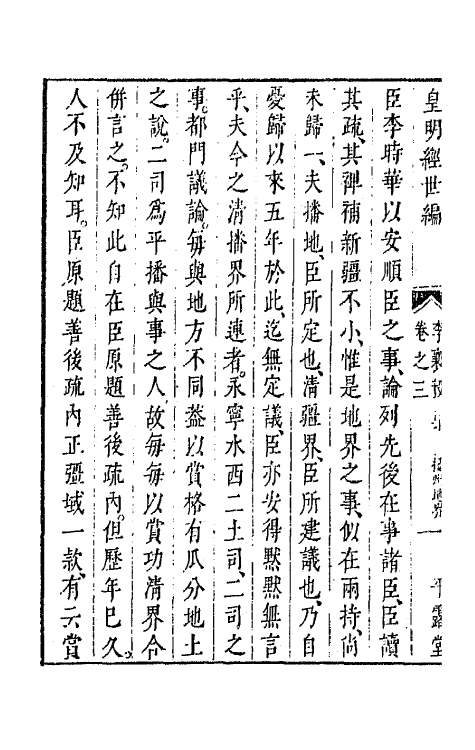 皇明經世編
李襄毅
卷之三
播州地界
一
平露堂
臣李時華以安順臣之事、論列先後在事諸臣、臣讀
其疏、其裨補新疆不小、惟是地界之事、似在兩持、尚
未歸一、夫播地、臣所定也、清疆界、臣所建議也、乃自
憂歸以來五年於此、迄無定議、臣亦安得默默無言
乎、夫今之清播界所連者、永寧水西二土司、二司之
事、都門議論、每與地方不同、葢以賞格有瓜分地土
之說。二司為平播與事之人、故每每以賞功清界合
併言之。不知此自在臣原題善後疏內。但歷年巳久。
人不及知耳。臣原題善後疏內正疆域一款、有云賞